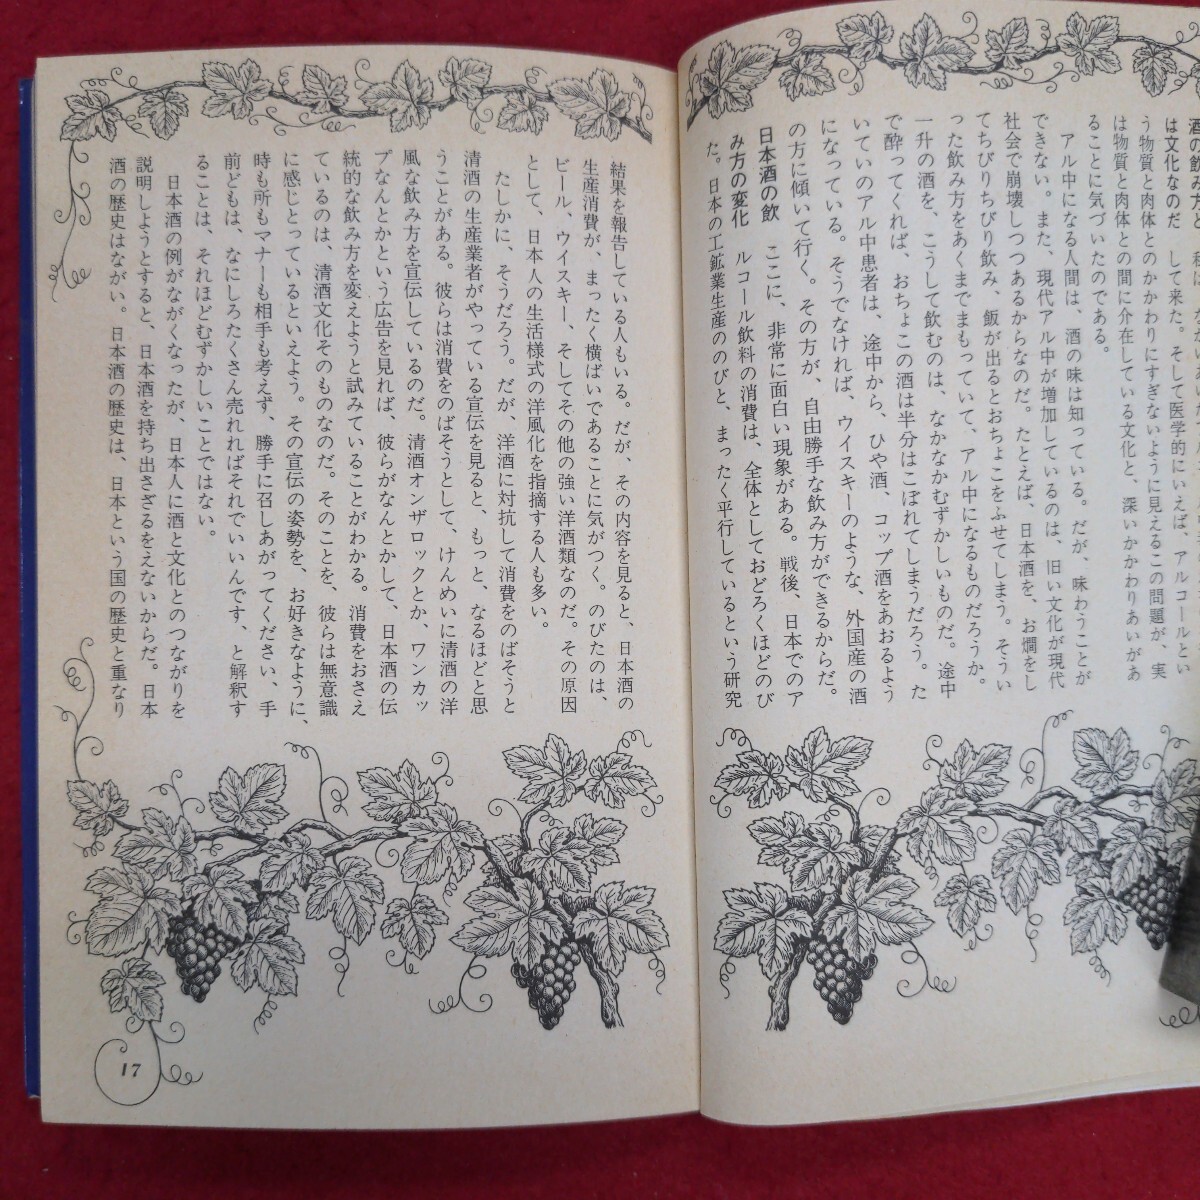 酒の飲み方と
は文化なのだ して来た。そして医学的にいえば、アルコールとい
う物質と肉体とのかかわりにすぎないように見えるこの問題が、実
は物質と肉体との間に介在している文化と、深いかかわりあいがあ
ることに気づいたのである。
アル中になる人間は、酒の味は知っている。だが、味わうことが
できない。また、現代アル中が増加しているのは、旧い文化が現代
社会で崩壊しつつあるからなのだ。たとえば、日本酒を、お燗をし
てちびりちびり飲み、飯が出るとおちょこをふせてしまう。そうい
った飲み方をあくまでまもっていて、アル中になるものだろうか。
一升の酒を、こうして飲むのは、なかなかむずかしいものだ。途中
で酔ってくれば、おちょこの酒は半分はこぼれてしまうだろう。た
いていのアル中患者は、途中から、ひや酒、コップ酒をあおるよう
になっている。そうでなければ、ウイスキーのような、外国産の酒
の方に傾いて行く。その方が、自由勝手な飲み方ができるからだ。
日本酒の飲
み方の変化
ここに、非常に面白い現象がある。戦後、日本でのア
ルコール飲料の消費は、全体としておどろくほどのび
た。日本の工鉱業生産ののびと、まったく平行しているという研究
結果を報告している人もいる。だが、その内容を見ると、日本酒の
生産消費が、まったく横ばいであることに気がつく。のびたのは、
ビール、ウイスキー、そしてその他の強い洋酒類なのだ。その原因
として、日本人の生活様式の洋風化を指摘する人も多い。
たしかに、そうだろう。だが、洋酒に対抗して消費をのばそうと
清酒の生産業者がやっている宣伝を見ると、もっと、なるほどと思
うことがある。彼らは消費をのばそうとして、けんめいに清酒の洋
風な飲み方を宣伝しているのだ。清酒オンザロックとか、ワンカッ
プなんとかという広告を見れば、彼らがなんとかして、日本酒の伝
統的な飲み方を変えようと試みていることがわかる。消費をおさえ
ているのは、清酒文化そのものなのだ。そのことを、彼らは無意識
に感じとっているといえよう。その宣伝の姿勢を、お好きなように、
時も所もマナーも相手も考えず、勝手に召しあがってください、手
前どもは、なにしろたくさん売れればそれでいいんです、と解釈す
ることは、それほどむずかしいことではない。
日本酒の例がながくなったが、日本人に酒と文化とのつながりを
説明しようとすると、日本酒を持ち出さざるをえないからだ。日本
酒の歴史はながい。日本酒の歴史は、日本という国の歴史と重なり
17